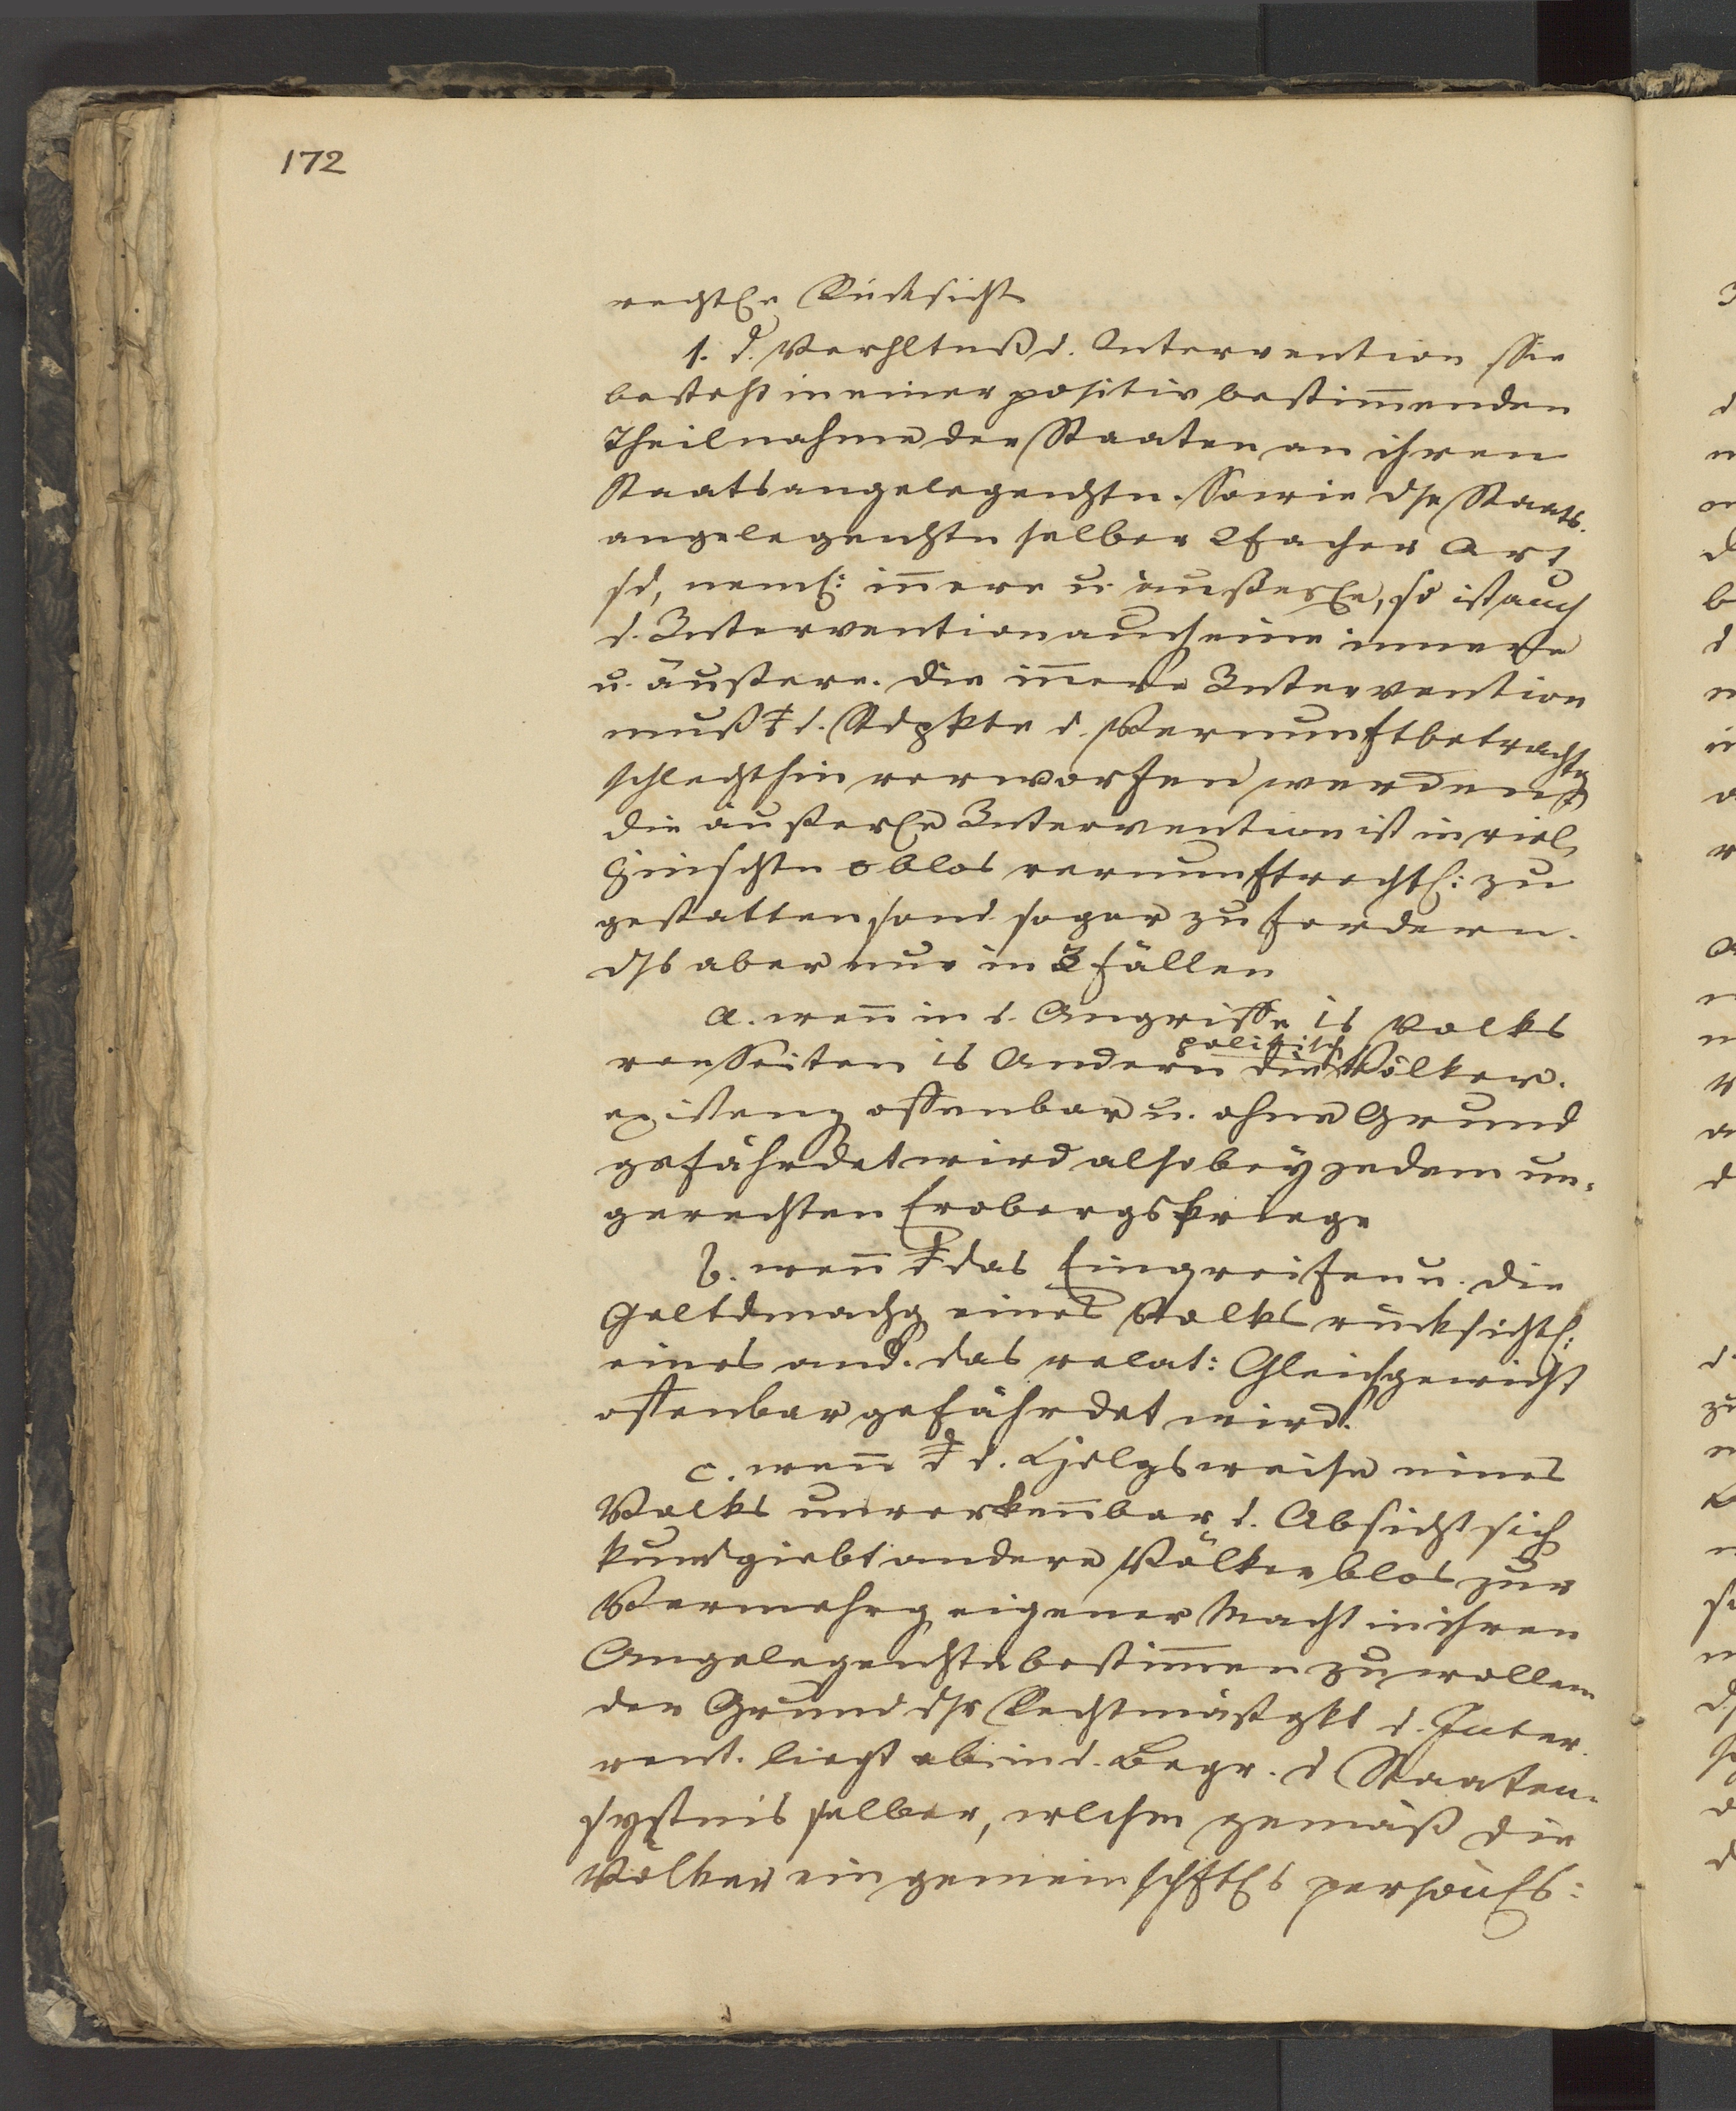 172
rechtl. Rücksicht
1. d. Verhltnß d. Intervention sie
besteht in einer positiv bestim̅enden
Theilnahme der Staaten an ihren
Staatsangelegenhtn. Sowie dse Staats-
angelegenhtn selber 2facher Art
sd, neml: in̅ere u. äußerle, so ist auch
d. Intervention auch eine innere
u. äußere. Die in̅ere Intervention
muß d. Stdpkte d. Vernunftbetrachtg
schlechthin verworfen werden
die äußerle Intervention ist in viel
Hinschtn o blos vernunftrechtl: zu
gestatten sond sogar zu fordern.
dß aber nur in 3 Fällen
a. wen̅ in d. Angriffe is Volks
von Seiten is Andern die politisch Völker-
existenz offenbar u. ohne Grund
gefährdet wird also bey jedem un-
gerechten Erobergskriege
b. wen̅ das Eingreifen u. die
Geltdmachg eines Volks rücksichtl:
eines and. das relat: Gleichgewicht
offenbar gefährdet wird.
c. wen̅ d. Hdlgsweise eines
Volks unverken̅bar d. Absicht sich
kundgiebt andere Völker blos zur
Vermehrg eigener Macht in ihren
Angelegenhtn bestim̅en zu wollen
der Grund dsr Rechtmäßgkt d. Inter-
vent. liegt ab. in d. Begr. d Staaten-
systms selber, wlchm gemäß die
Völker ein gemeinschftls persönls: